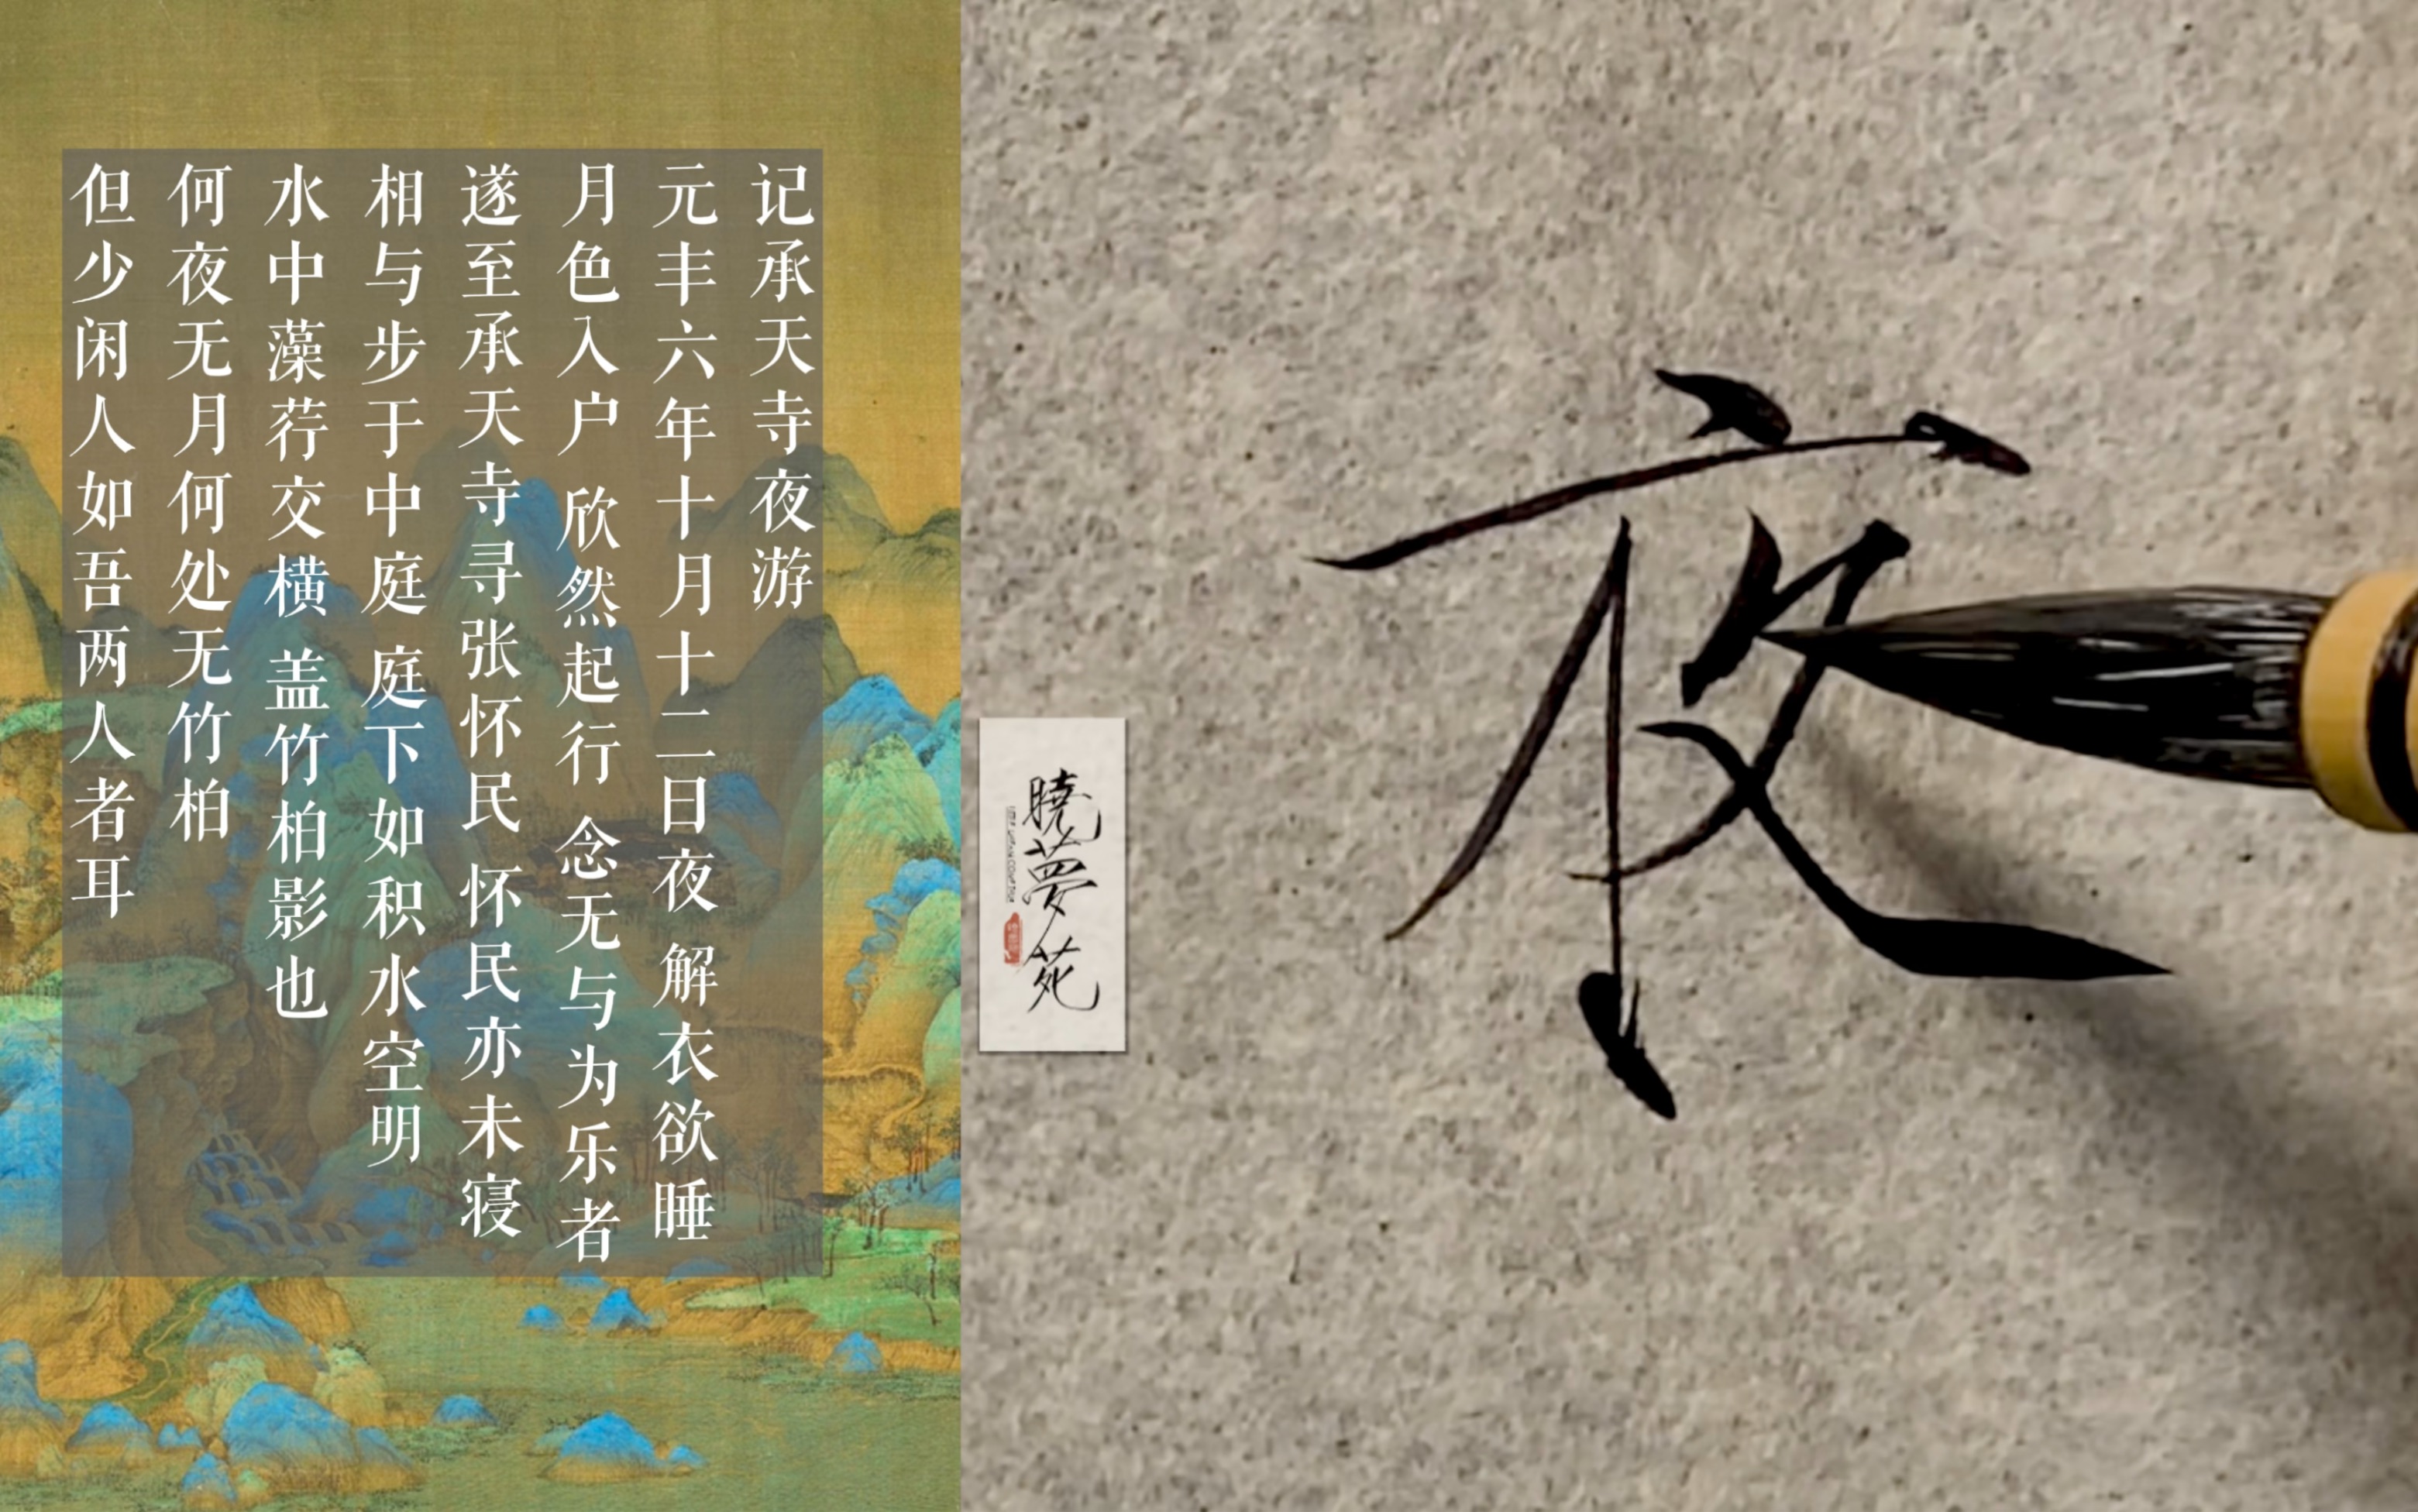 记承天寺夜游
元丰六年十月十二日夜 解衣欲睡
月色入户 欣然起行 念无与为乐者
遂至承天寺寻张怀民 怀民亦未寝
相与步于中庭 庭下如积水空明
水中藻荇交横 盖竹柏影也
何夜无月何处无竹柏
但少闲人如吾两人者耳
夜
曉夢苑